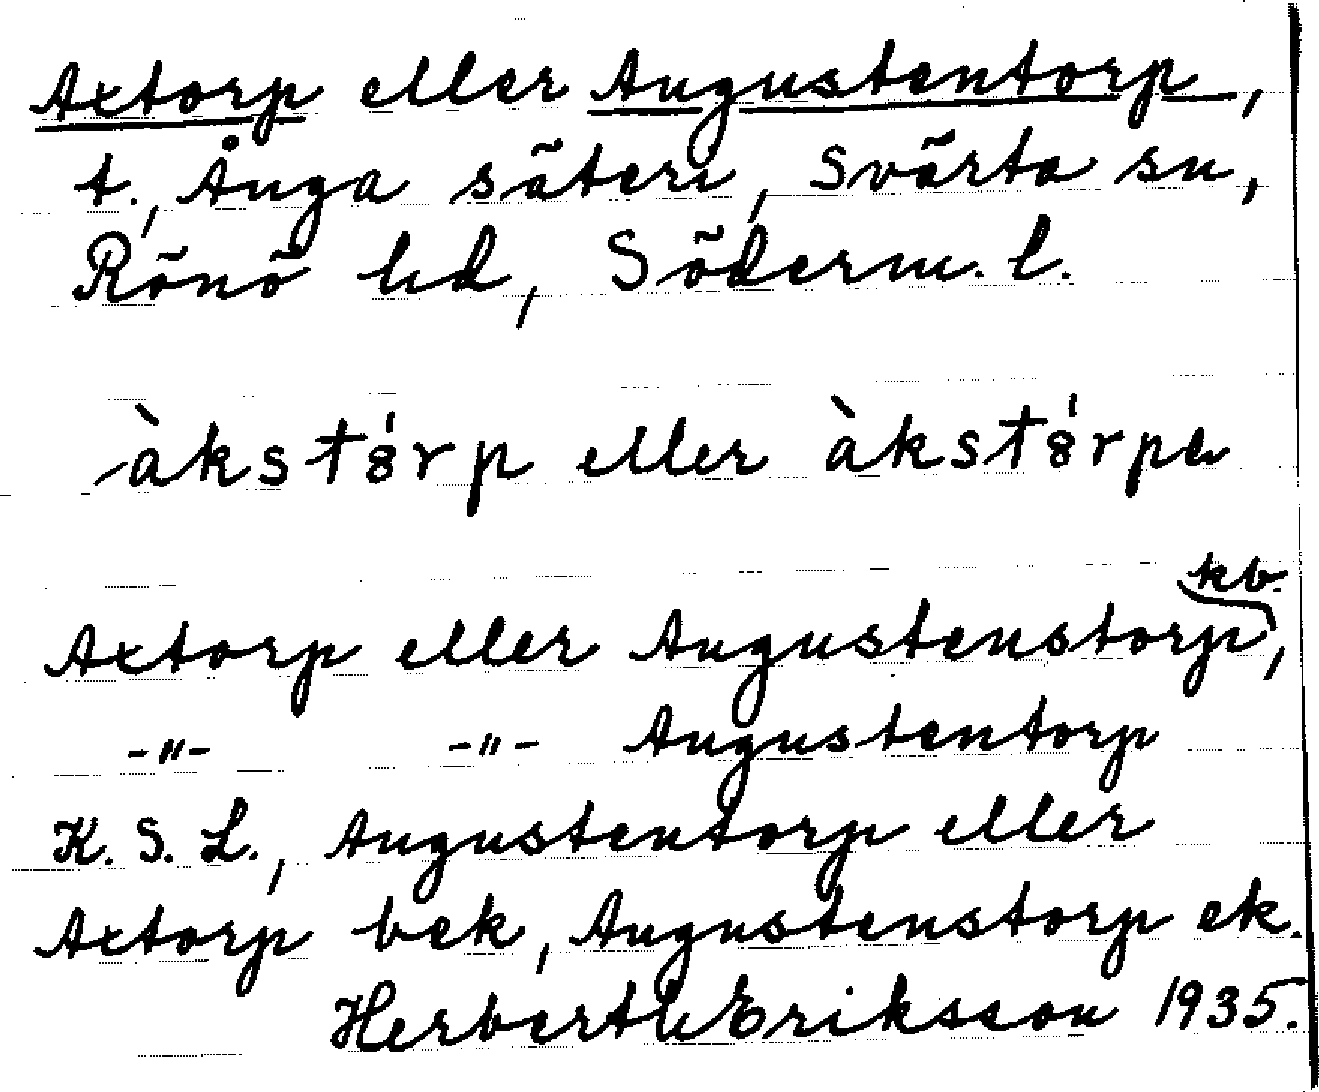 Axtorp eller Augustentorp,
t., Ånga säteri, Svärta sn,
Rönö hd, Söderm. l.
àkstȣ́rp eller àkstȣ́rpa
kb.
Axtorp eller Augustenstorp,
-"- -"- Augustentorp
K. S. L., Augustentorp eller
Axtorp bek, Augustenstorp ek.
Herberth Eriksson 1935.